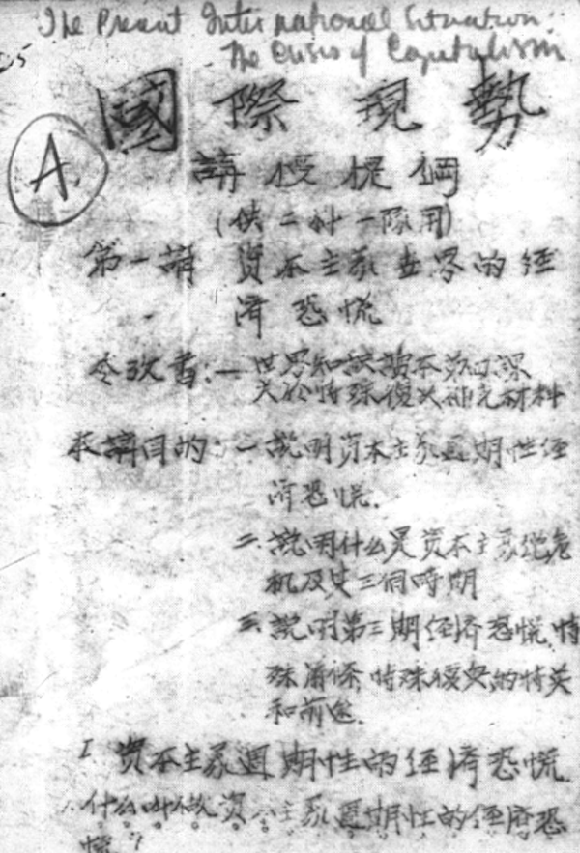 The Present International Situation:
The Crisis of Capitalism
A.
國際現勢
講授提綱
(供二科一隊用)
第一講 資本主義世界的經
濟恐慌
參攷書:一
关於特殊復关研究材料
本講目的:一 説明資本主義週期性經
濟恐慌.
二.説明什么是資本主義總危
机及其三個時期
三.説明第三期經濟恐慌,特
殊蕭條,特殊復興的特質
和前途.
I 資本主義週期性的經濟恐慌
什么叫做資本主義週期性的經濟恐
慌?